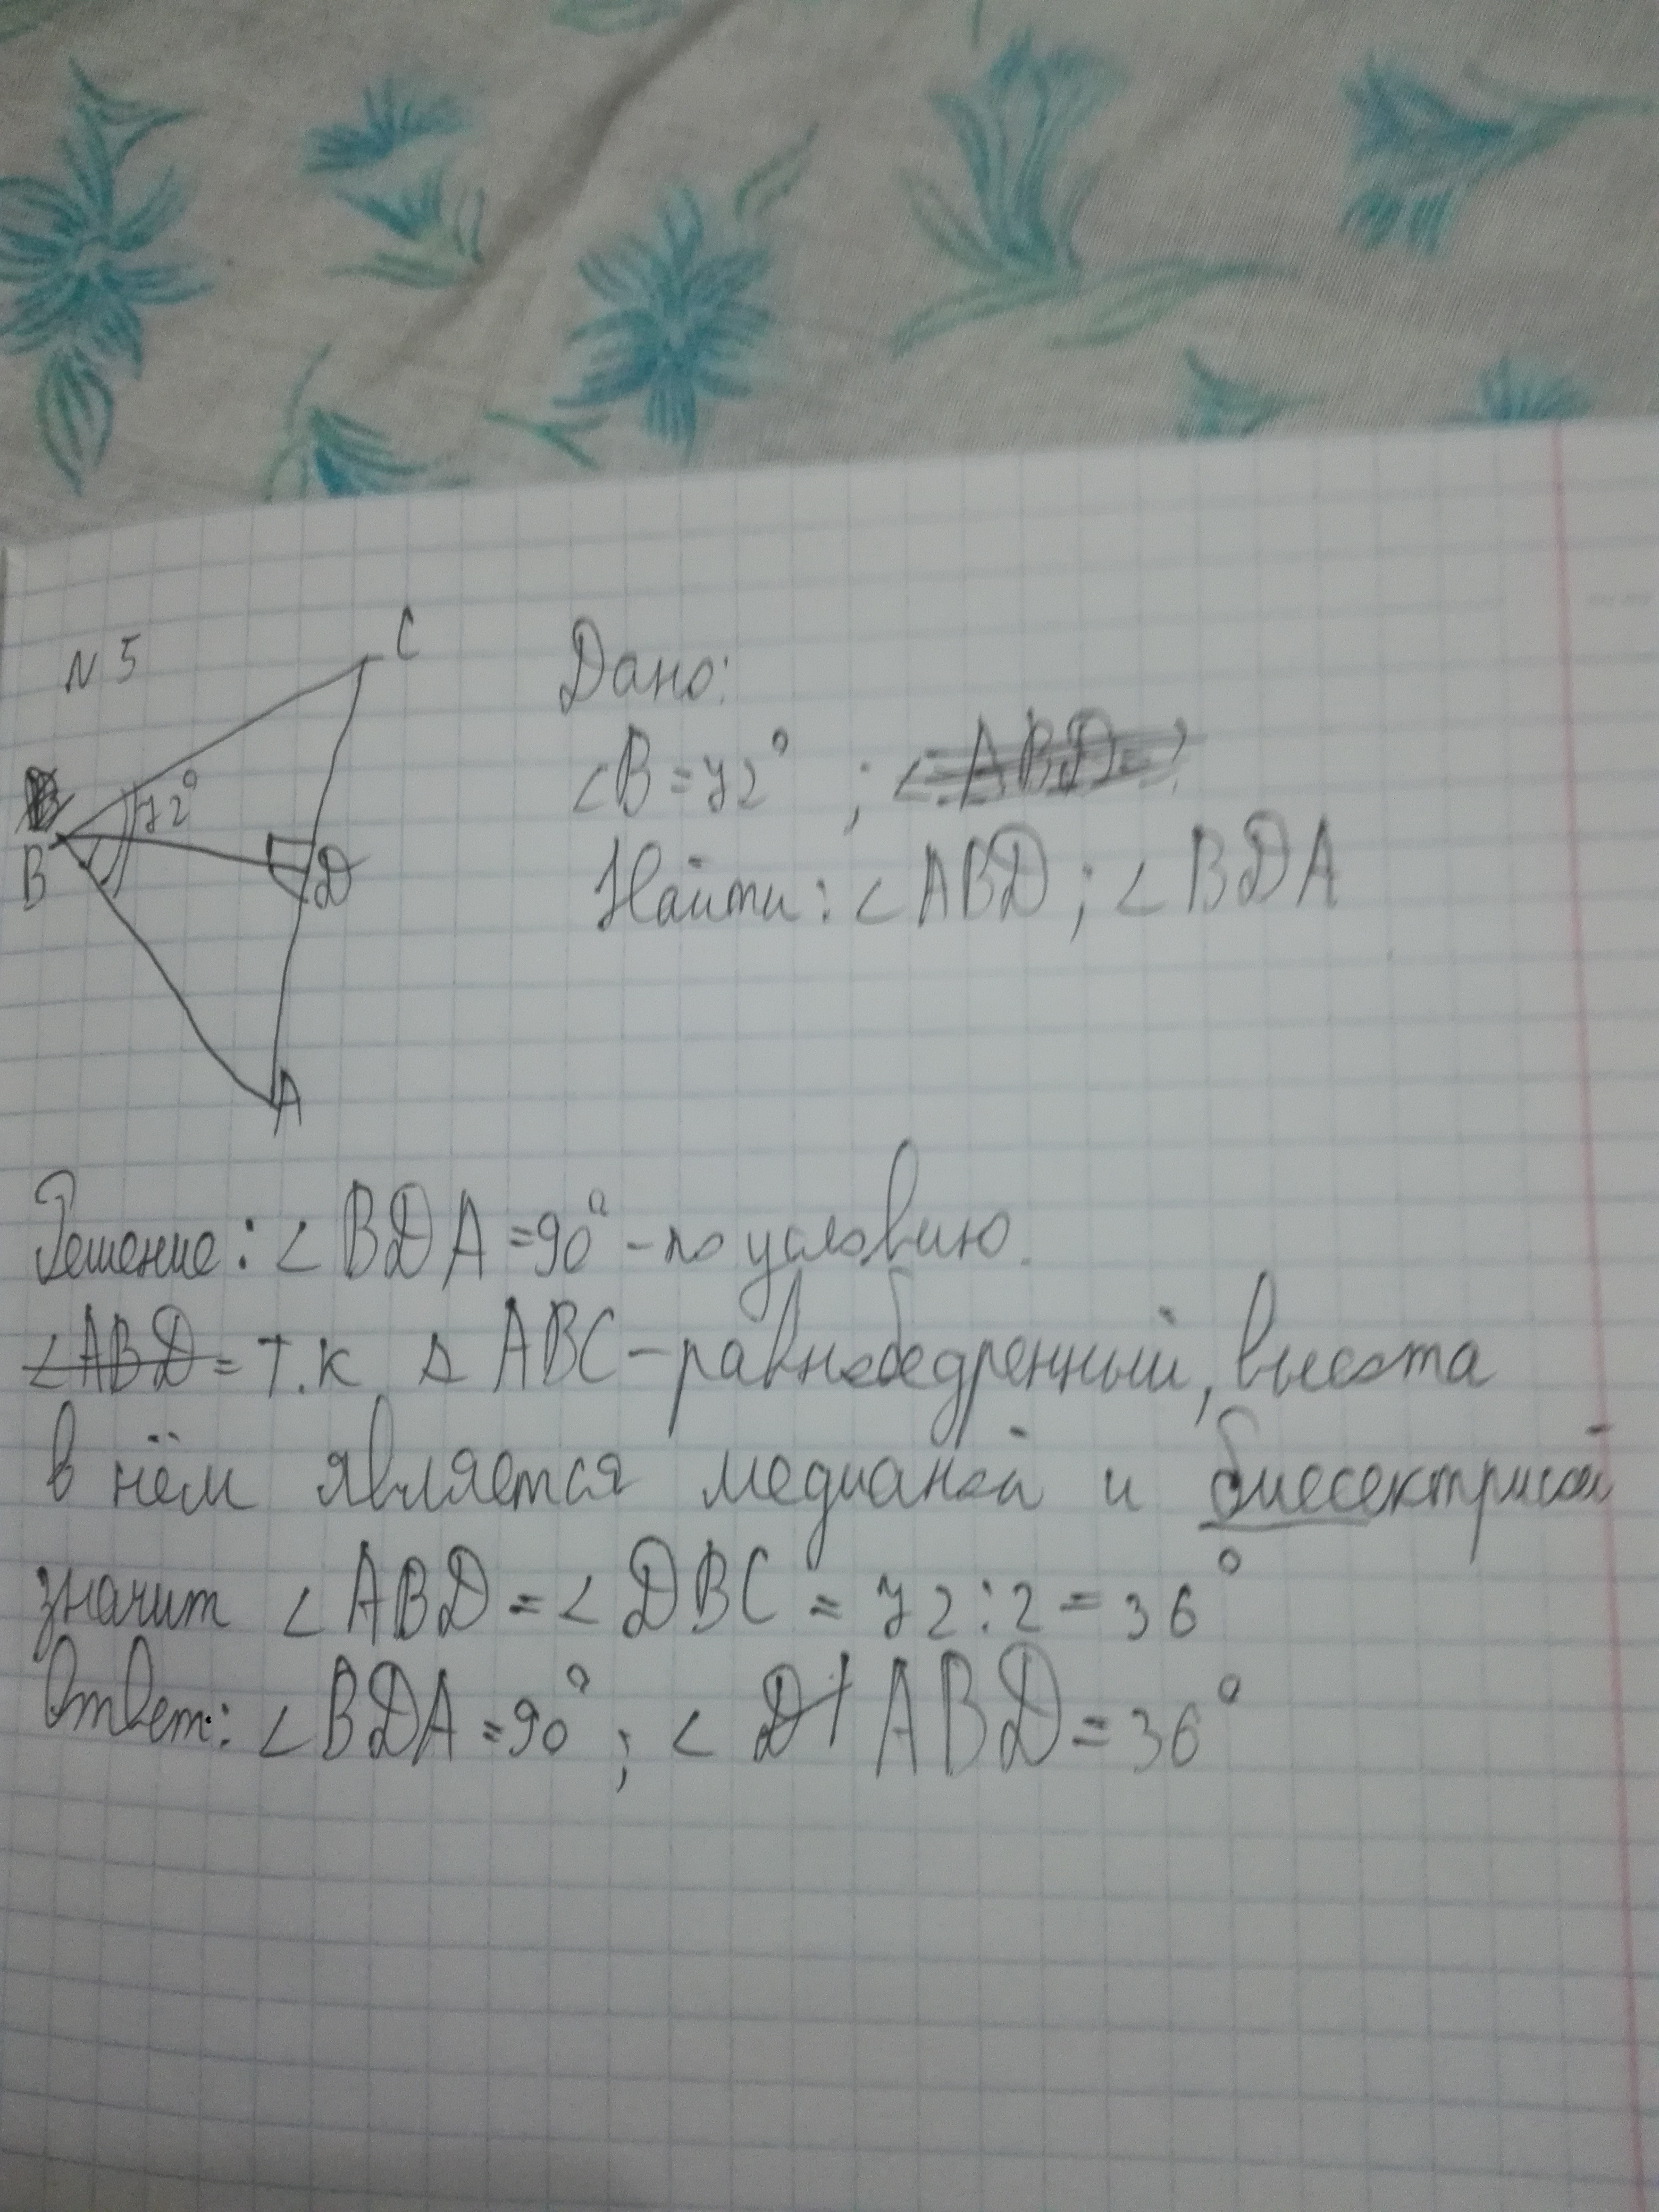 N 5
C
Дано:
72°
∠B = 72° ;
B
D
Найти: ∠ABD; ∠BDA
A
Решение: ∠BDA = 90° - по условию.
∠ABD = т.к. Δ ABC - равнобедренный, высота
в нём является медианой и биссектрисой
значит ∠ABD = ∠DBC = 72:2 = 36°
Ответ: ∠BDA = 90°; ∠ ABD = 36°